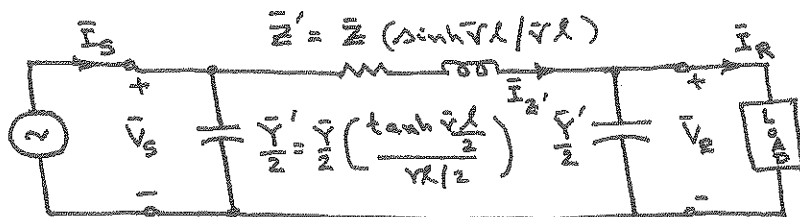 Z̄' = Z̄ (sinh γ̄l / γ̄l)
Ī_S
Ī_R
+
+
Ī_Z'
~
V̄_S
Ȳ'/2 = Ȳ/2 (tanh γ̄l/2 / γl/2)
Ȳ'/2
V̄_R
LOAD
-
-